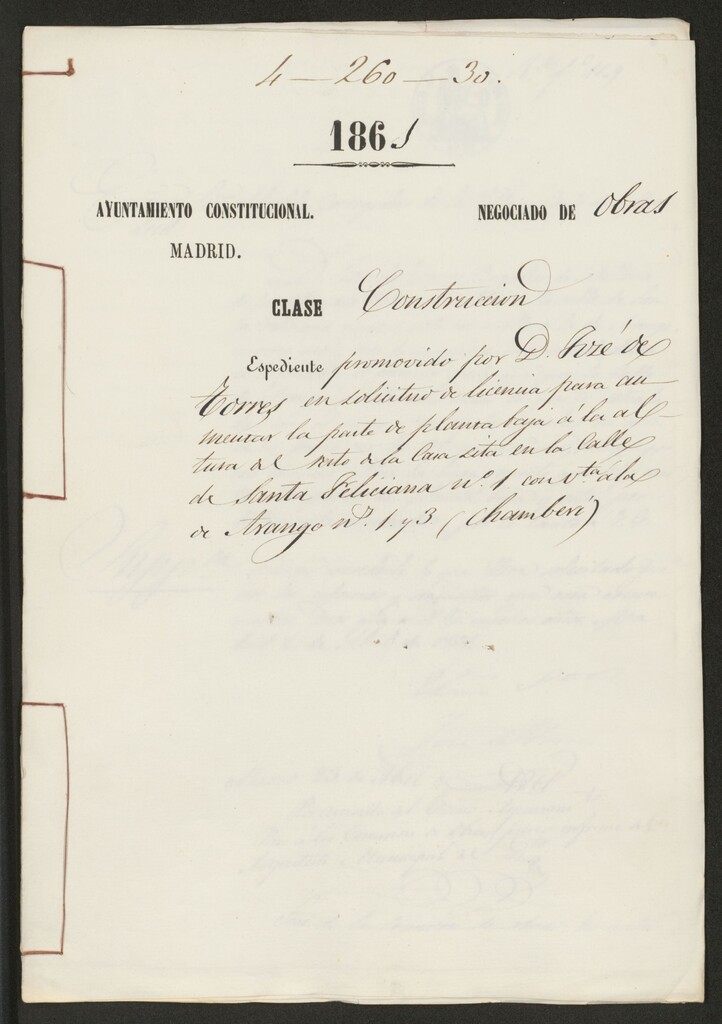 4-260-30.
1861
AYUNTAMIENTO CONSTITUCIONAL.
NEGOCIADO DE Obras
MADRID.
CLASE Construccion
Espediente promovido por D. José de
Torres en solicitud de licencia para au
mentar la parte de planta baja á la al-
tura del resto de la Casa sita en la Calle
de Santa Feliciana nº. 1 con vta á la
de Arango nº. 1. y 3 (Chamberí)